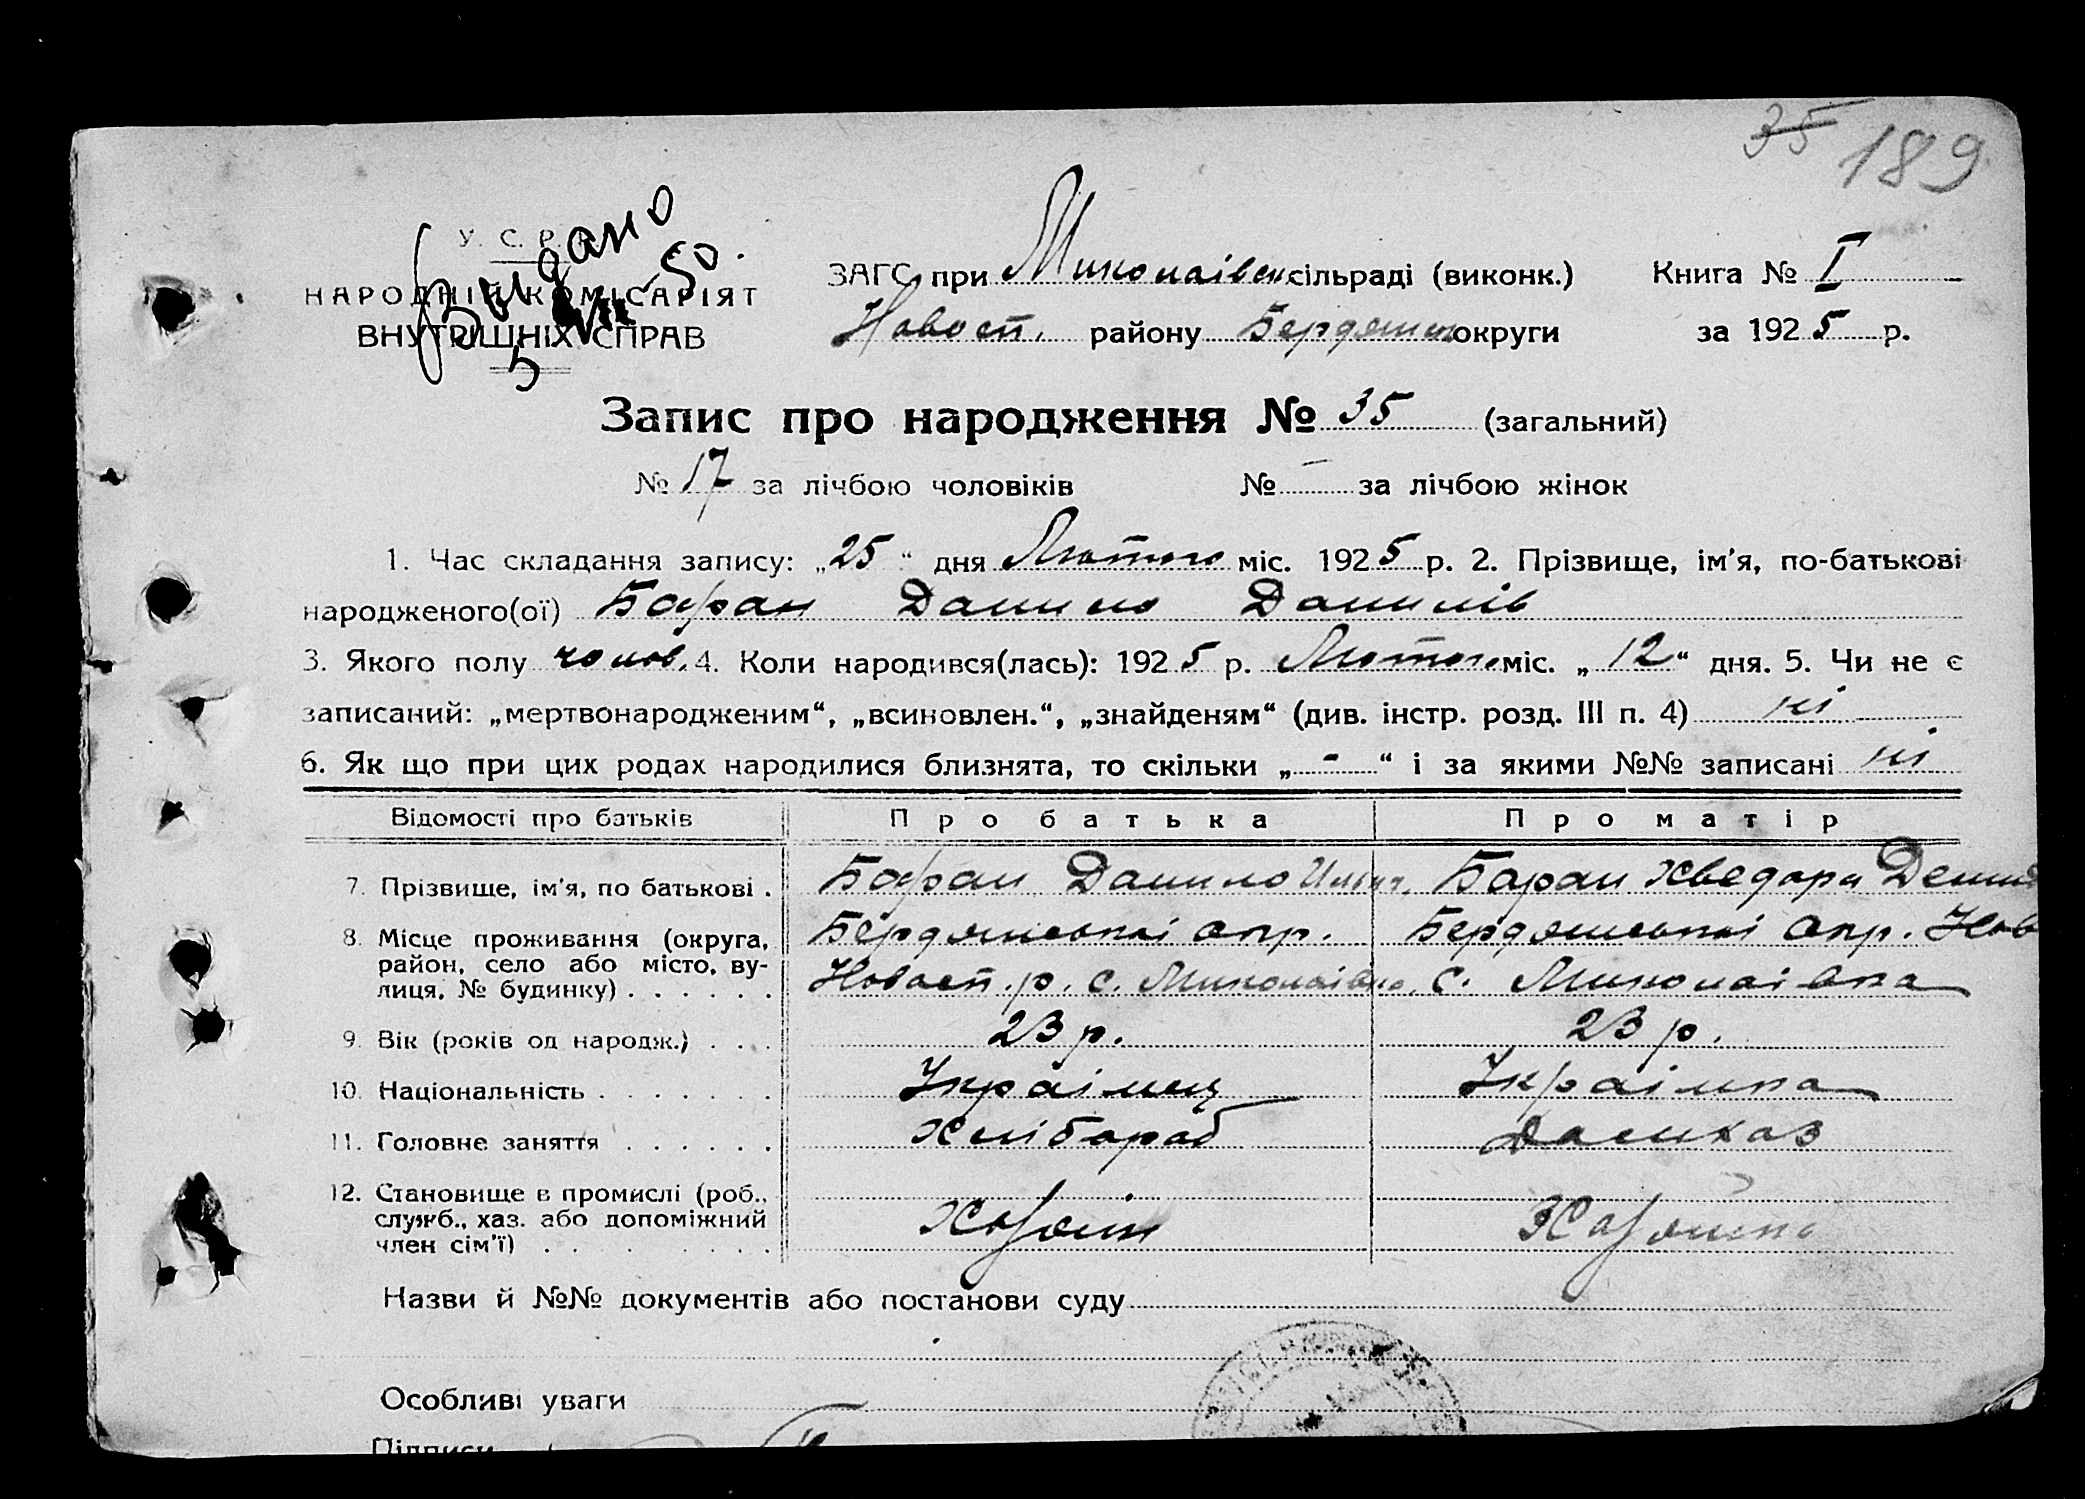 35 189
У. С. Р. Р.
НАРОДНІЙ КОМІСАРІЯТ
ВНУТРІШНІХ СПРАВ
Видано
5 VII-50.
ЗАГС при Миколаївск сільраді (виконк.) Книга № I
Новосп. району Бердянськ округи за 1925 р.
Запис про народження № 35 (загальний)
№ 17 за лічбою чоловіків № – за лічбою жінок
1. Час складання запису: „25“ дня Лютого міс. 1925 р. 2. Прізвище, ім'я, по-батькові
народженого(ої) Баран Данило Данилів
3. Якого полу чолов. 4. Коли народився(лась): 1925 р. Лютого міс. „12“ дня. 5. Чи не є
записаний: „мертвонародженим“, „всиновлен.“, „знайденям“ (див. інстр. розд. III п. 4) ні
6. Як що при цих родах народилися близнята, то скільки „-“ і за якими №№ записані ні
Відомості про батьків Про батька Про матір
7. Прізвище, ім'я, по батькові . Баран Данило Баран Хведора
8. Місце проживання (округа, Бердянськоі окр. Бердянськоі окр. Нов
район, село або місто, ву-
лиця, № будинку) . . . . . . Новосп. р. с. Миколаівка, с. Миколаівка
9. Вік (років од народж.) . . . 23 р. 23 р.
10. Національність . . . . . . . Украінец Украінка
11. Головне заняття . . . . . . Хлібороб Домхаз
12. Становище в промислі (роб.,
служб., хаз. або допоміжний Хазяін Хазяйка
член сім'ї) . . . . . . . .
Назви й №№ документів або постанови суду
Особливі уваги
Підписи